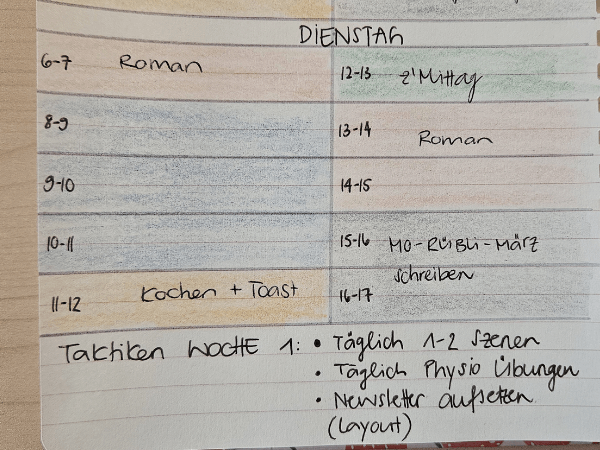 DIENSTAG
6-7 Roman
8-9
9-10
10-11
11-12 Kochen + Toast
12-13 z'Mittag
13-14 Roman
14-15
15-16 MO-RÜBLI-MÄRZ
schreiben
16-17
Taktiken WOCHE 1: • Täglich 1-2 Szenen
• Täglich Physio Übungen
• Newsletter aufsetzen
(Layout)